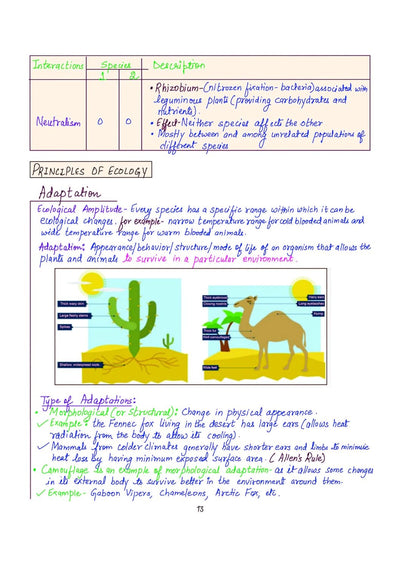 Interactions Species Description
1 2
• Rhizobium-(nitrogen fixation-bacteria) associated with
leguminous plants (providing carbohydrates and
nutrients).
Neutralism 0 0 • Effect- Neither species affects the other
• Mostly between and among unrelated populations of
different species
PRINCIPLES OF ECOLOGY
Adaptation
Ecological Amplitude- Every species has a specific range within which it can be
ecological changes. for example- narrow temperature range for cold blooded animals and
wide temperature range for warm blooded animals.
Adaptation: Appearance/behavior/structure/mode of life of an organism that allows the
plants and animals to survive in a particular environment.
Thick waxy skin
Large fleshy stems
Spines
Shallow, widespread roots
Thick eyebrows
Closing nostrils
Thick fur
Wide feet
Hairy ears
Long eyelashes
Hump
Type of Adaptations:
• Morphological (or Structural): Change in physical appearance.
✓ Example: the Fennec fox living in the desert has large ears (allows heat
radiation from the body to allow its cooling).
✓ Mammals from colder climates generally have shorter ears and limbs to minimise
heat loss by having minimum exposed surface area. (Allen's Rule)
• Camouflage is an example of morphological adaptation- as it allows some changes
in its external body to survive better in the environment around them.
✓ Example- Gaboon Vipers, Chameleons, Arctic Fox, etc.
13